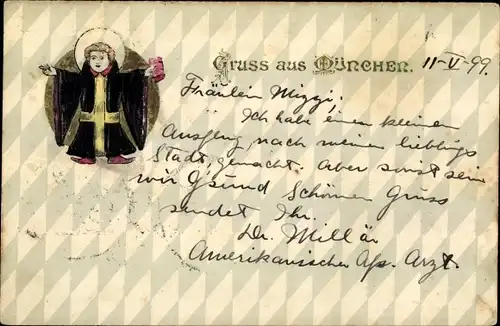 Gruss aus München. 11-V-99.
Fräulein Mizzi!
Ich habe einen kleinen
Ausflug nach meiner lieblings
Stadt, gemacht. Aber sonst sein
wir G'sund Schönen Gruss
sendet Ihr.
Dr. Millär
Amerikanischer Arzt.